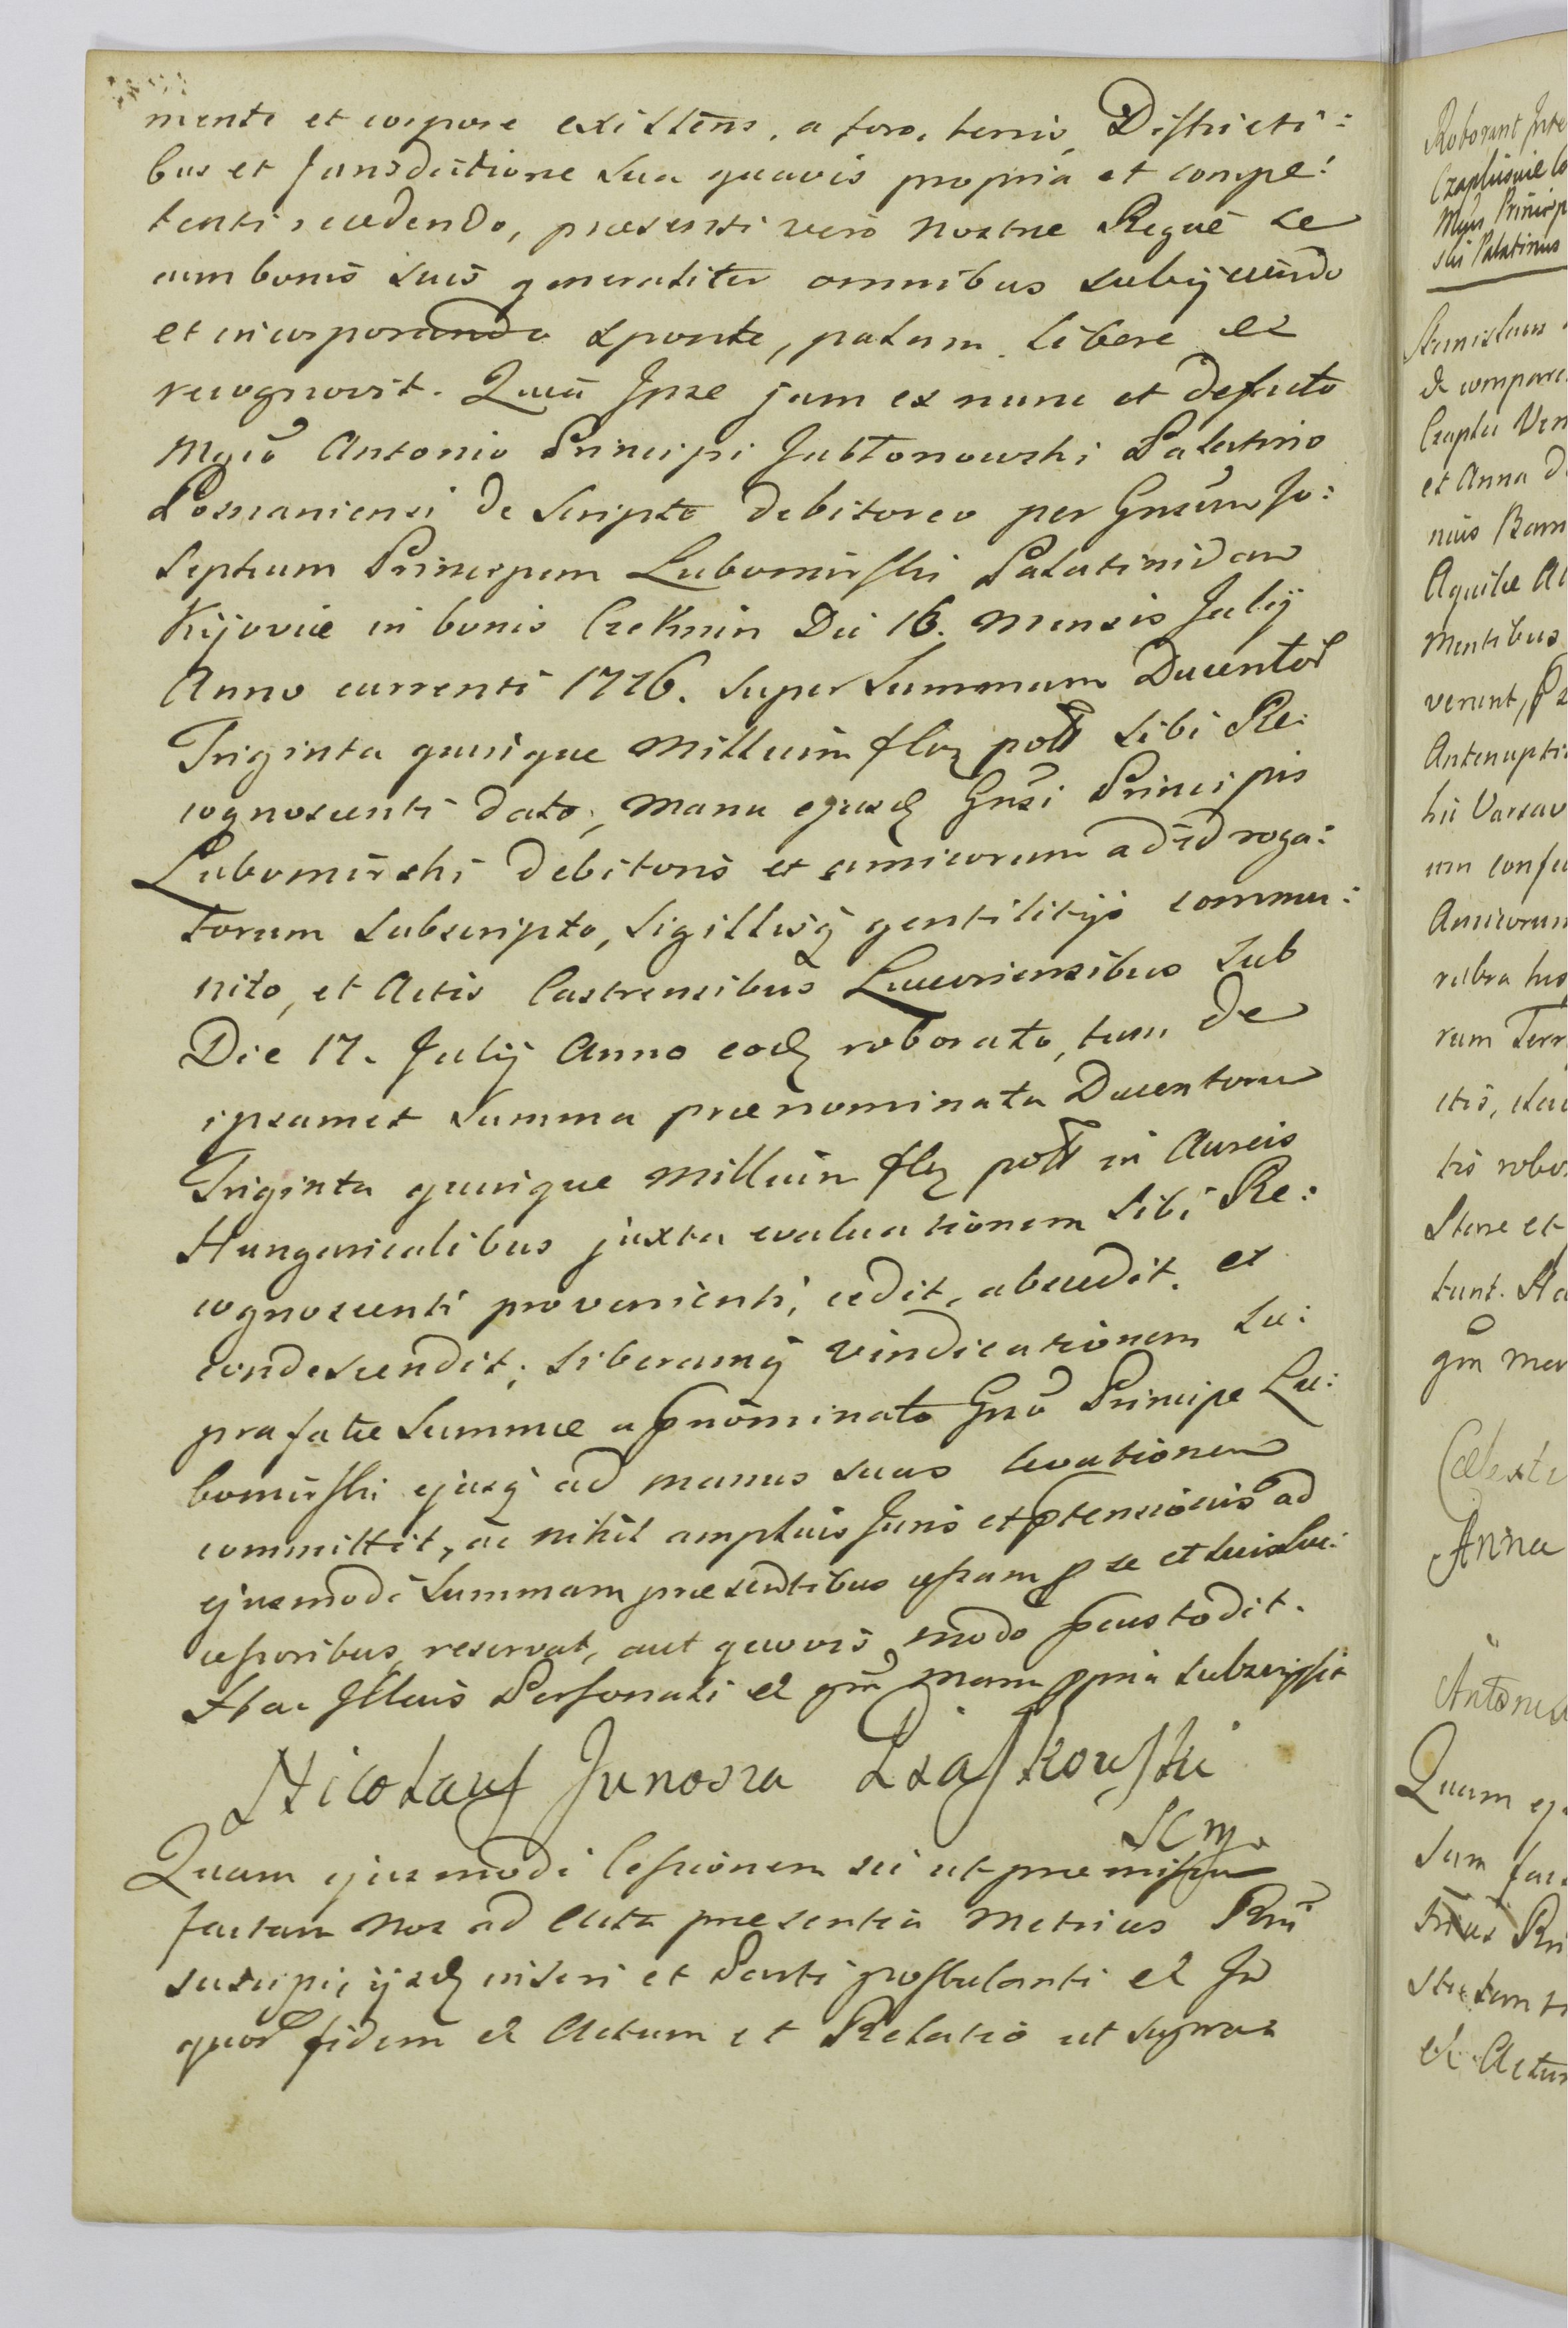 mente et corpore existens, a foro, terris, Districti:
bus et Jurisdictione sua quavis propria et compe:
tenti recedendo, præsenti verò Nostræ Regiæ se
cum bonis suis generaliter omnibus subijciendo
et incorporando sponte, palam, libere &
recognovit. Quia Ipse jam ex nunc et defacto
Mgco Antonio Principi Jabłonowski Palatino
Posnaniensi de Scripto debitoreo per Gnsum Jo:
sephum Principem Lubomirski Palatinidam
Kijoviæ in bonis Czeknin Die 16. Mensis Julij
Anno currenti 1776. super Summam Ducentor
Triginta quinque Millium flor poll sibi Re:
cognoscenti dato, Manu ejusd Gnsi Principis
Lubomirski debitoris et amicorum ad id roga:
torum subscripto, Sigillisq gentilitijs commu:
nito, et Actis Castrensibus Luceoriensibus sub
Die 17. Julij Anno eod roborato, tum de
ipsamet Summa prænominata Ducentorum
Triginta quinque Millium flor poll in Aureis
Hungaricalibus juxta evaluationem sibi Re:
cognoscenti provenienti, cedit, abscedit, et
condescendit; liberamq vindicationem su:
prafatæ Summæ a pnominato Gnso Principe Lu:
bomirski ejusq ad manus suas levationem
committit, ac nihil amplius Juris et ptensionis ad
ejusmodi Summam præsentibus cessam p se et suis suc:
cessoribus, reservat, aut quovis modo pcustodit.
Hac Illius Personali & gni manu ppria subscripsit
Nicolaus Junosza Piaskowski
SCmo
Quam ejusmodi Cessionem sic ut præmissum
factam Nos ad Acta præsentia Metrices Rni
suscepi, ijsd inseri et Parti postulanti & In
quor fidem & Actum et Relatio ut supra
Roborant Inte
Mgus Princip
Palatinus
Stanislaus
& compare
et Anna D
Aquilæ Al
Mentibus
verunt,
Antenupti
hic Varsav
Amicorum
rum Terr
tis robor
Stare et
tunt. Ha
Cælest
Anna
Antonius
Quam ej
& Actum